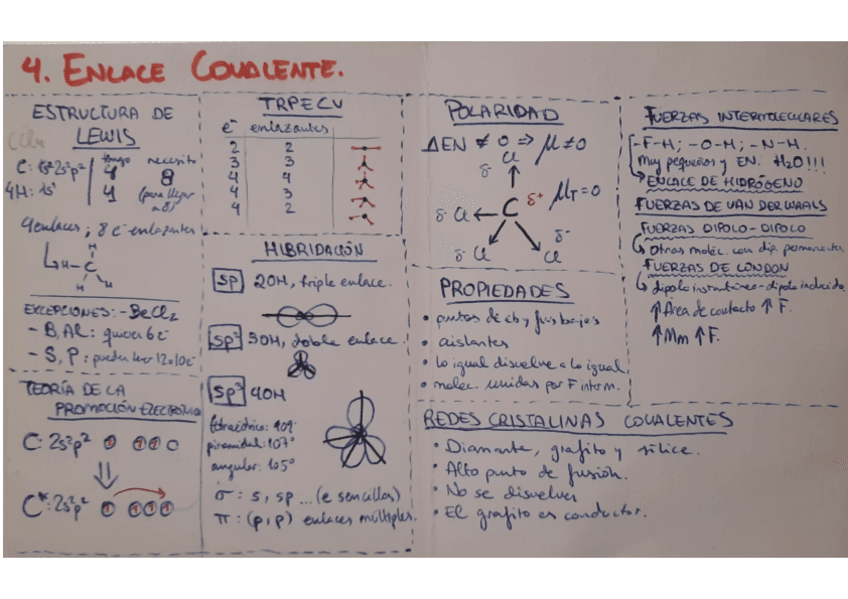 4. ENLACE COVALENTE.
ESTRUCTURA DE
LEWIS
CCl4
tengo necesito
C: 1s²2s²p² 4 8
4H: 1s¹ 4 (para llegar
a 8)
4 enlaces; 8 e⁻ enlazantes
H
H - C - H
H
EXCEPCIONES: - BeCl2
- B, Al: quieren 6e⁻
- S, P: pueden tener 12 o 10e⁻
TEORÍA DE LA
PROMOCIÓN ELECTRÓNICA
C: 2s²p²
C*: 2s²p²
TRPECV
e⁻ enlazantes
2 2
3 3
4 4
4 3
4 2
HIBRIDACIÓN
sp 2OH, triple enlace.
sp² 3OH, doble enlace.
sp³ 4OH
tetraédrico: 109°
piramidal: 107°
angular: 105°
σ: s, sp ... (e sencillos)
π: (p, p) enlaces múltiples.
POLARIDAD
ΔEN ≠ 0 ⇒ μ ≠ 0
δ⁻ Cl
δ⁻ Cl ← C δ⁺ μT = 0
δ⁻ Cl Cl δ⁻
PROPIEDADES
• puntos de eb y fus bajos
• aislantes
• lo igual disuelve a lo igual
• moléc. unidas por F interm.
FUERZAS INTERMOLECULARES
-F-H; -O-H; -N-H.
Muy pequeños y EN. H2O!!!
ENLACE DE HIDRÓGENO
FUERZAS DE VAN DER WAALS
FUERZAS DIPOLO-DIPOLO
Otras moléc. con dip. permanente
FUERZAS DE LONDON
dipolo instantáneo - dipolo inducido
↑ Área de contacto ↑ F.
↑ Mm ↑ F.
REDES CRISTALINAS COVALENTES
• Diamante, grafito y sílice.
• Alto punto de fusión.
• No se disuelven
• El grafito es conductor.